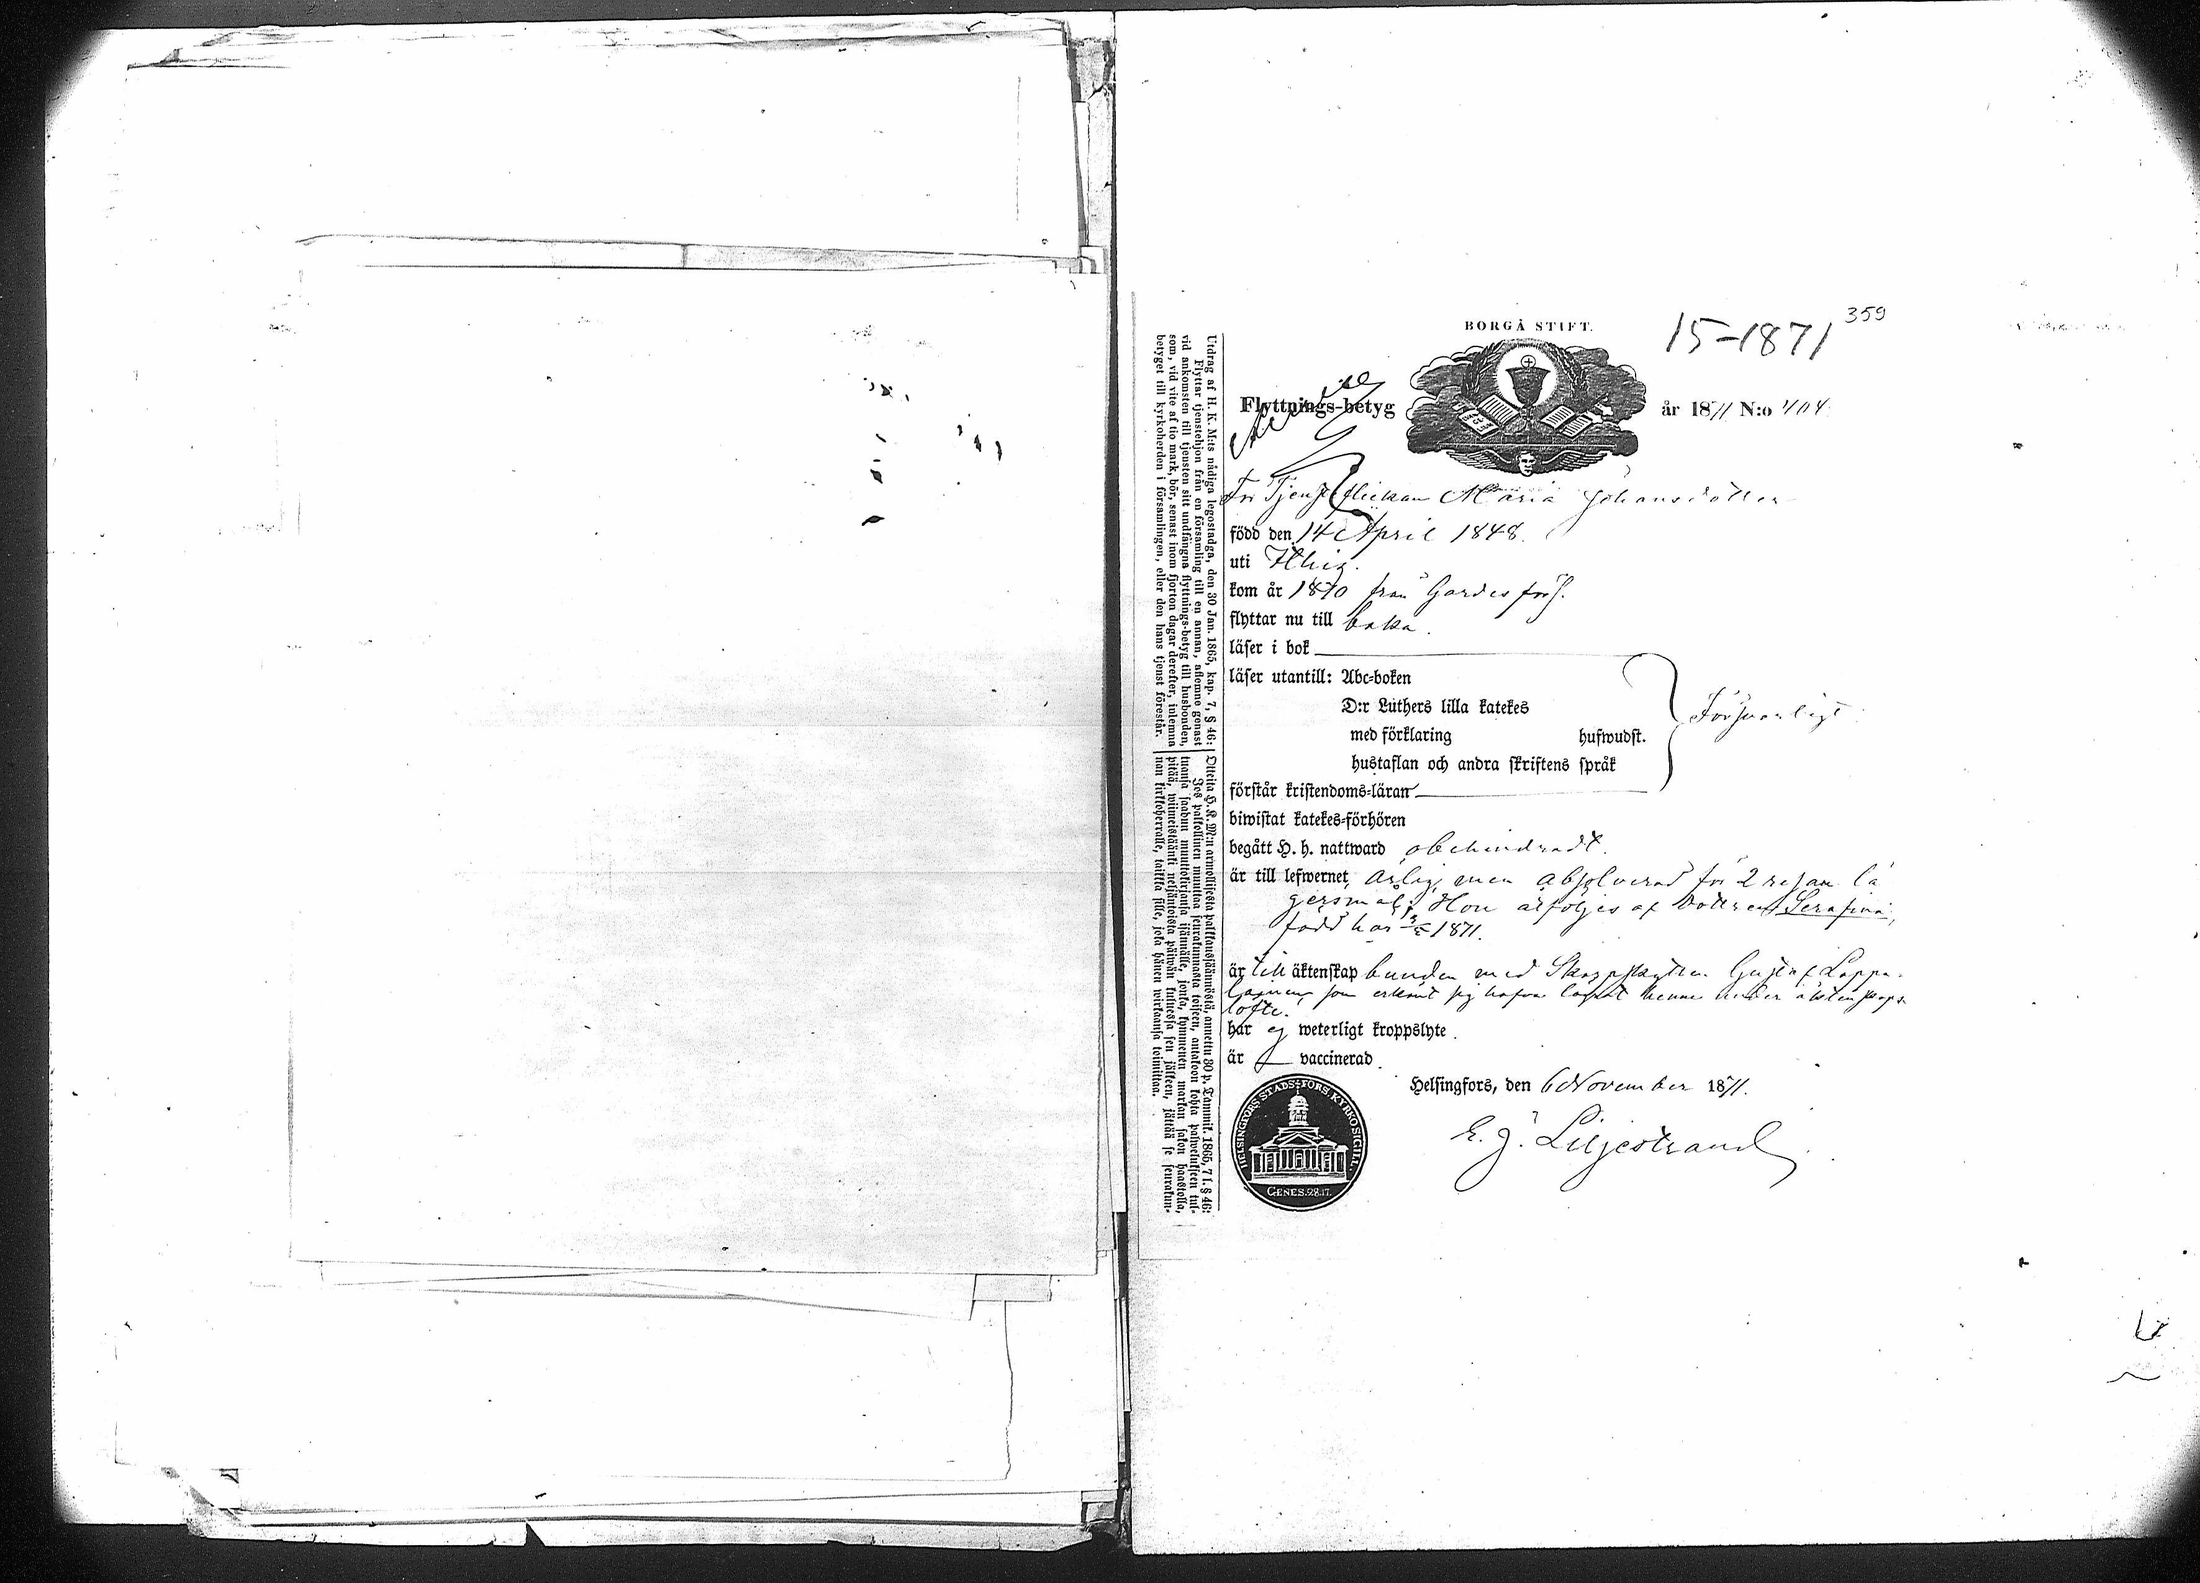 359
15-1871
BORGÅ STIFT.
Flyttnings-betyg år 1871 N:o 404
För Tjenstflickan Maria Johansdotter
född den 14 April 1848.
uti Hhig.
kom år 1870 från Gardes förs.
flyttar nu till baka.
läser i bok
läser utantill: Abc-boken
D:r Luthers lilla katekes
med förklaring hufwudst.
hustaflan och andra skriftens språk
Försvarligt
förstår kristendoms-läran
biwistat katekes-förhören
begått H. h. nattward obehindradt.
är till lefwernet, ärlig, men absolverad för 2 resan lä
gersmål; Hon åtföljes af dottren Serafina,
född här 1871.
är till äktenskap bunden med Skarpskytten Gustaf Lappa-
lainen, som erkänt sig hafva lägrat henne under äktenskaps
löfte.
har ej weterligt kroppslyte.
är vaccinerad.
Helsingfors, den 6 November 1871.
E. J. Liljestrand
HELSINGFORS STADS-FÖRS. KYRKOSIGILL.
GENES. 28.17.
Utdrag af H. K. M:ts nådiga legostadga, den 30 Jan. 1865, kap. 7, § 46:
Flyttar tjenstehjon från en församling till en annan, aflemne genast
vid ankomsten till tjensten sitt undfångna flyttnings-betyg till husbonden,
som, vid vite af tio mark, bör, senast inom fjorton dagar derefter, inlemna
betyget till kyrkoherden i församlingen, eller den hans tjenst förestår.
Otteita H. K. M:n armollisesta palkkaussäännöstä, annettu 30 p. Tammik. 1865, 7 l. § 46:
Jos palkollinen muuttaa seurakunnasta toiseen, antakoon kohta palwelukseen tul-
tuansa saadun muuttokirjansa isännälle, jonka, kymmenen markan sakon haastolla,
pitää, wiimeistäänki neljäntoista päiwän kuluessa sen jälkeen, jättää se seurakun-
nan kirkkoherralle, taikka sille, joka hänen wirkaansa toimittaa.